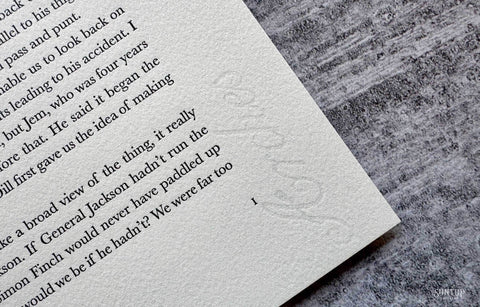 back
llel to his thig
pass and punt.
nable us to look back on
ts leading to his accident. I
, but Jem, who was four years
ore that. He said it began the
Dill first gave us the idea of making
ke a broad view of the thing, it really
kson. If General Jackson hadn't run the
imon Finch would never have paddled up
would we be if he hadn't? We were far too
I
SUNTUP